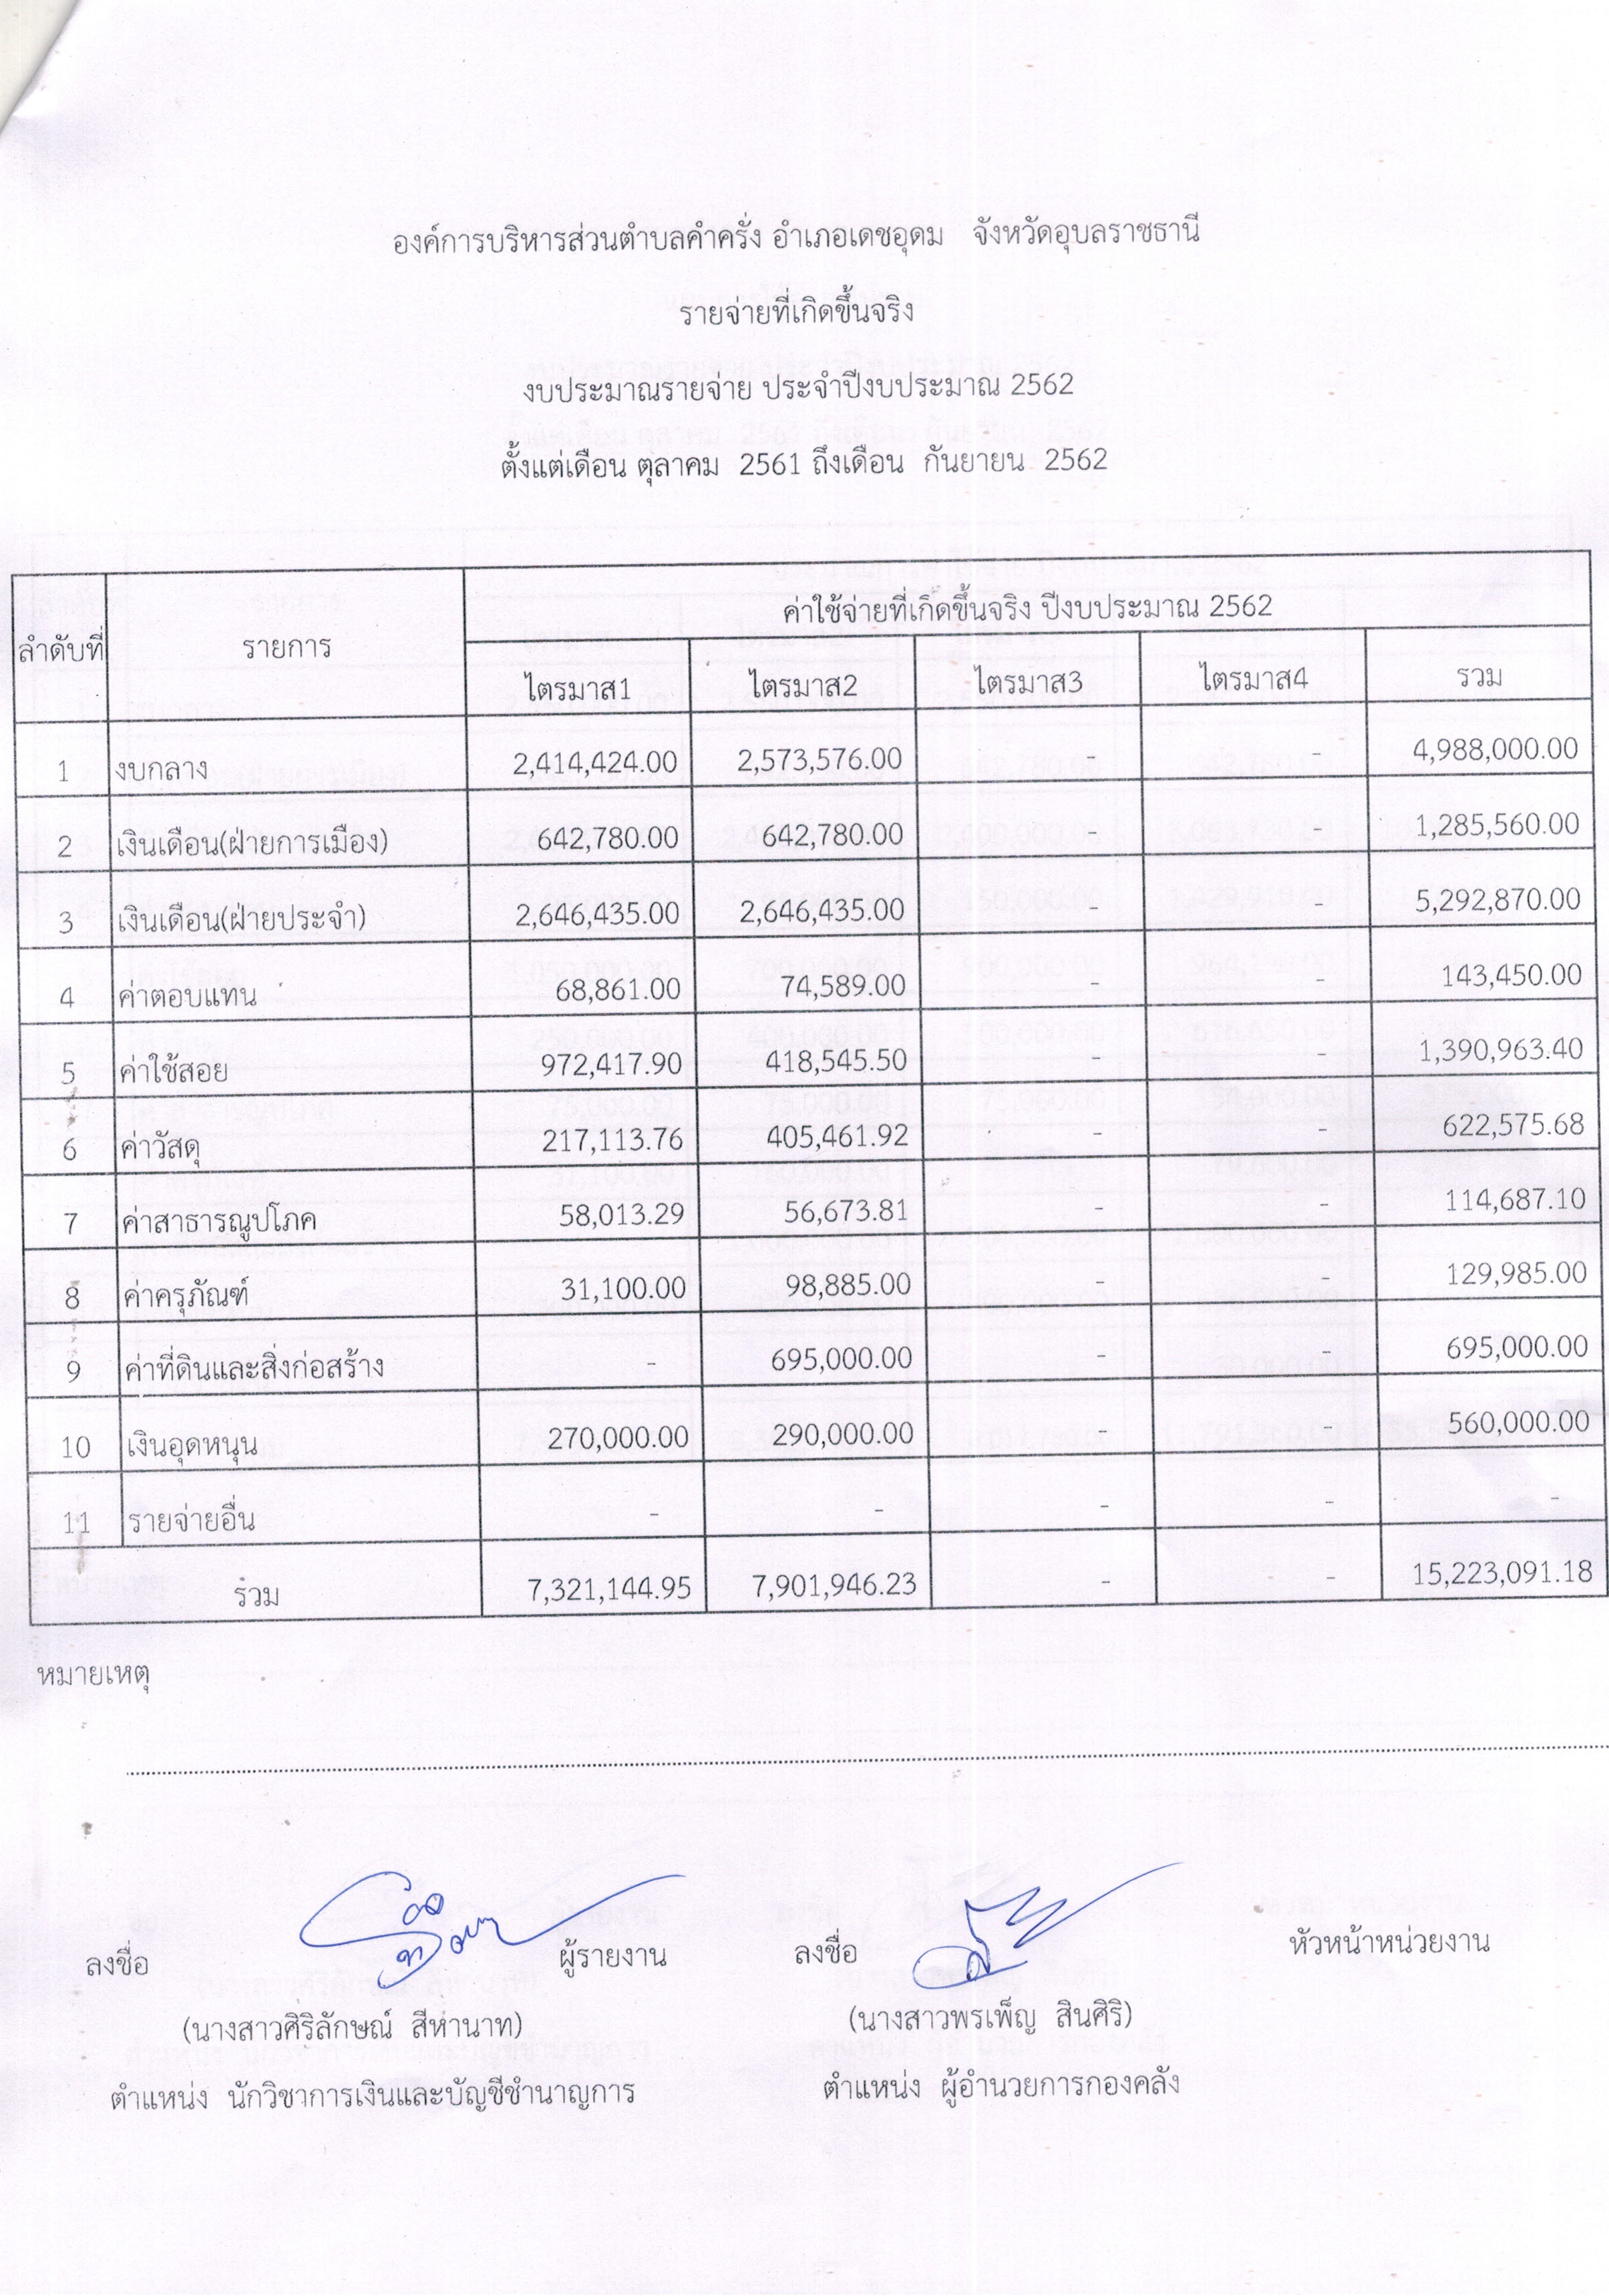 องค์การบริหารส่วนตำบลคำครั่ง อำเภอเดชอุดม จังหวัดอุบลราชธานี
รายจ่ายที่เกิดขึ้นจริง
งบประมาณรายจ่าย ประจำปีงบประมาณ 2562
ตั้งแต่เดือน ตุลาคม 2561 ถึงเดือน กันยายน 2562
ลำดับที่ รายการ ค่าใช้จ่ายที่เกิดขึ้นจริง ปีงบประมาณ 2562
ไตรมาส1 ไตรมาส2 ไตรมาส3 ไตรมาส4 รวม
1 งบกลาง 2,414,424.00 2,573,576.00 - - 4,988,000.00
2 เงินเดือน(ฝ่ายการเมือง) 642,780.00 642,780.00 - - 1,285,560.00
3 เงินเดือน(ฝ่ายประจำ) 2,646,435.00 2,646,435.00 - - 5,292,870.00
4 ค่าตอบแทน 68,861.00 74,589.00 - - 143,450.00
5 ค่าใช้สอย 972,417.90 418,545.50 - - 1,390,963.40
6 ค่าวัสดุ 217,113.76 405,461.92 - - 622,575.68
7 ค่าสาธารณูปโภค 58,013.29 56,673.81 - - 114,687.10
8 ค่าครุภัณฑ์ 31,100.00 98,885.00 - - 129,985.00
9 ค่าที่ดินและสิ่งก่อสร้าง - 695,000.00 - - 695,000.00
10 เงินอุดหนุน 270,000.00 290,000.00 - - 560,000.00
11 รายจ่ายอื่น - - - - -
รวม 7,321,144.95 7,901,946.23 - - 15,223,091.18
หมายเหตุ
ลงชื่อ ผู้รายงาน ลงชื่อ หัวหน้าหน่วยงาน
(นางสาวศิริลักษณ์ สีหานาท) (นางสาวพรเพ็ญ สินศิริ)
ตำแหน่ง นักวิชาการเงินและบัญชีชำนาญการ ตำแหน่ง ผู้อำนวยการกองคลัง